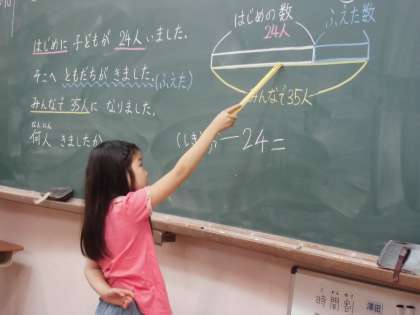 はじめに 子どもが 24人 いました。
そこへ ともだちが きました。(ふえた)
みんなで 35人に なりました。
なんにん
何人 きましたか
はじめの数
24人
ふえた数
みんなで35人
(しき)
-24=
時間割